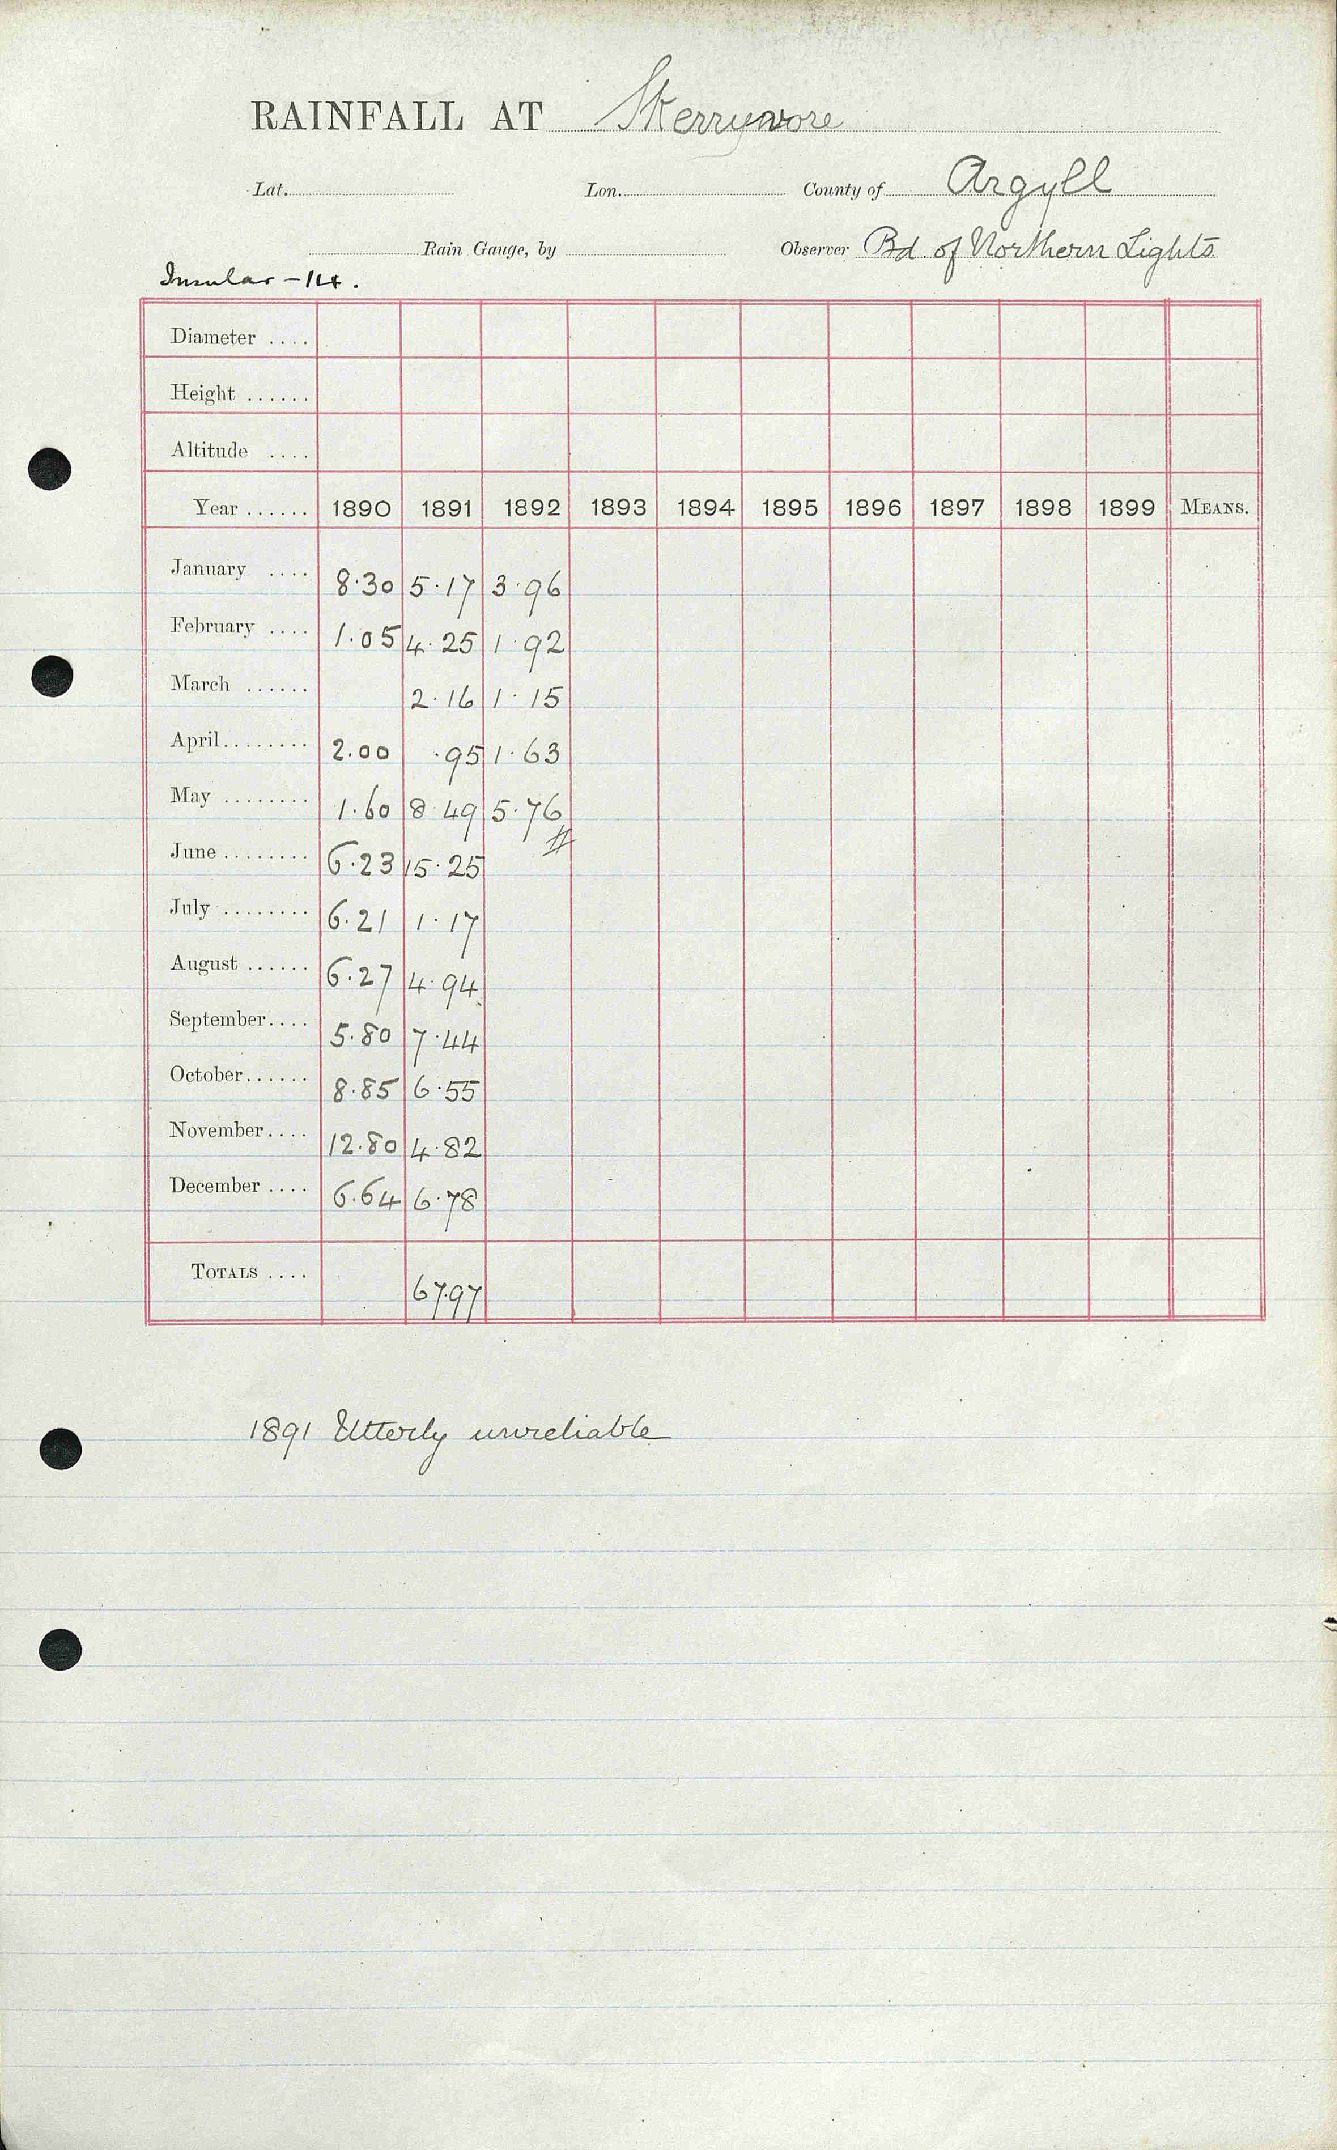 RAINFALL AT Skerryvore
Lat. Lon. County of Argyll
Rain Gauge, by Observer Bd of Northern Lights
Insular - 14.
Diameter ....
Height ......
Altitude ....
Year ...... 1890 1891 1892 1893 1894 1895 1896 1897 1898 1899 MEANS.
January .... 8.30 5.17 3.96
February .... 1.05 4.25 1.92
March ...... 2.16 1.15
April........ 2.00 .95 1.63
May ........ 1.60 8.49 5.76
June ........ 6.23 15.25 #
July ........ 6.21 1.17
August ...... 6.27 4.94
September.... 5.80 7.44
October...... 8.85 6.55
November.... 12.80 4.82
December .... 6.64 6.78
TOTALS .... 67.97
1891 Utterly unreliable